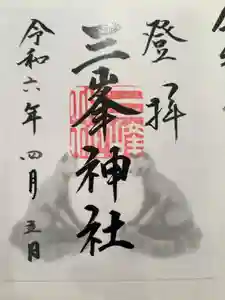 登拝
三峯神社
令和六年四月五日